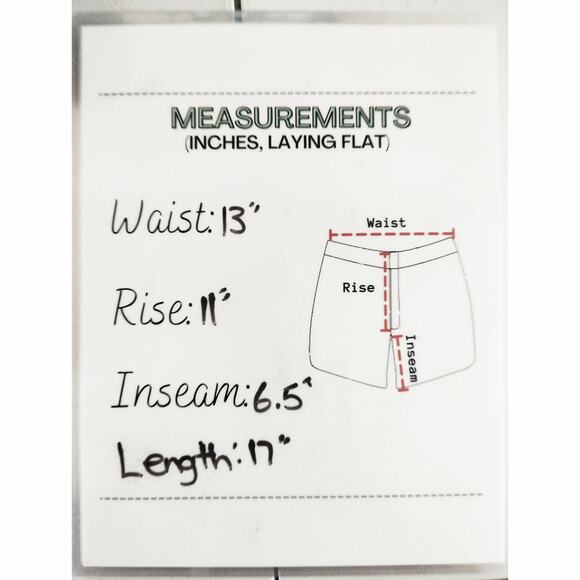 MEASUREMENTS
(INCHES, LAYING FLAT)
Waist: 13"
Rise: 11"
Inseam: 6.5"
Length: 17"
Waist
Rise
Inseam